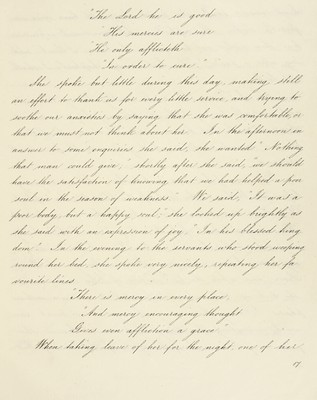 "The Lord he is good
"His mercies are sure
"He only afflicteth
"In order to cure."
She spoke but little during this day, making still
an effort to thank us for every little service, and trying to
soothe our anxieties by saying that she was comfortable, or
that we must not think about her. In the afternoon in
answer to some enquiries she said, she wanted "Nothing
that man could give," shortly after she said, "we should
have the satisfaction of knowing that we had helped a poor
soul in the season of weakness." We said, "It was a
poor body, but a happy soul;" she looked up brightly as
she said with an expression of joy, "In his blessed king
dom." In the evening to the servants who stood weeping
round her bed, she spoke very nicely, repeating her fa
vourite lines
"There is mercy in every place,
"And mercy encouraging thought
Gives even affliction a grace"
When taking leave of her for the night, one of her
17